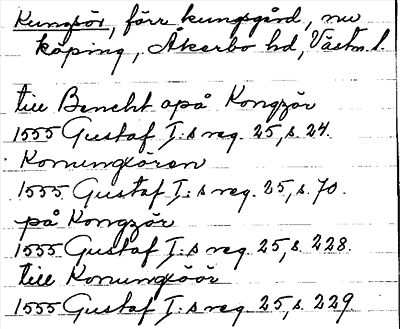 Kungsör, förr kungsgård, nu
köping, Åkerbo hd, Västm. l.
till Bencht opå Kongzör
1555 Gustaf I:s reg. 25, s. 24.
Konungxören
1555 Gustaf I:s reg. 25, s. 70.
på Kongzör
1555 Gustaf I:s reg. 25, s. 228.
till Konungxöör
1555 Gustaf I:s reg. 25, s. 229.